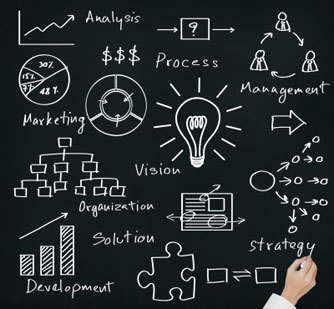 Analysis
?
$$$
Process
Management
30%
15%
7%
48%
Marketing
Vision
Organization
Solution
Strategy
Development